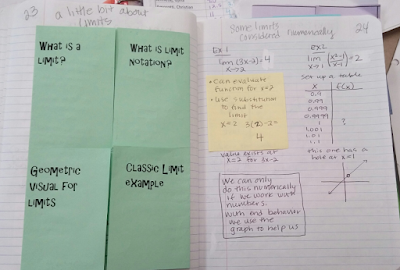 23 a little bit about
limits
What is a
Limit?
What is Limit
Notation?
Geometric
Visual For
Limits
Classic Limit
example
Some limits
Considered Numerically
24
Ex 1
lim (3x-2) = 4
x→2
• Can evaluate
function for x=2
• Use substitution
to find the
limit
x=2 3(2)-2=
4
value exists at
x=2 for 3x-2
We can only
do this numerically
if we work with
numbers.
With end behavior
we use the
graph to help us
ex2
lim (x²-1)/(x-1) = 2
x→1
set up a table
x f(x)
0.9
0.99
0.999
1 ?
1.001
1.01
1.1
this one has a
hole at x=1